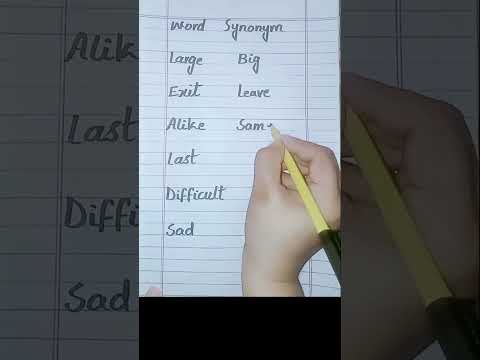 Word Synonym
Large Big
Exit Leave
Alike Sam
Last
Difficult
Sad
Alike
Last
Difficult
Sad